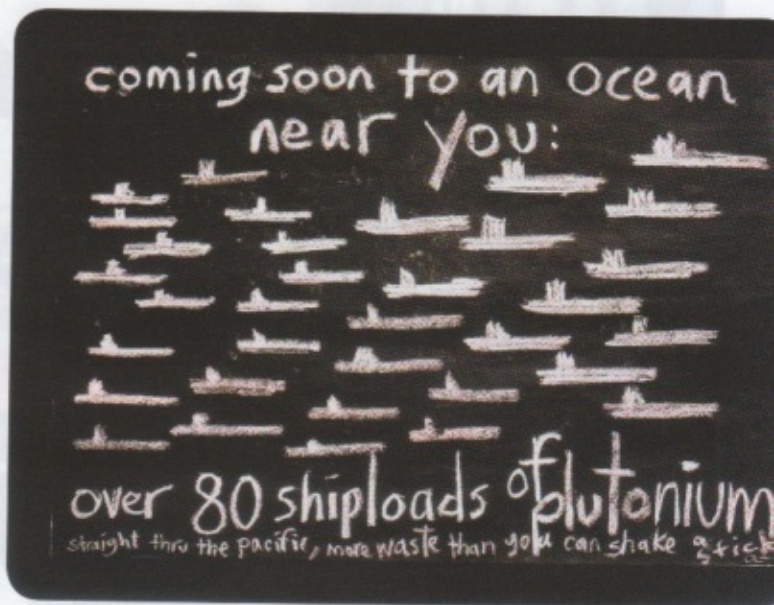 coming soon to an ocean
near you:
over 80 shiploads of plutonium
straight thru the pacific, more waste than you can shake a stick